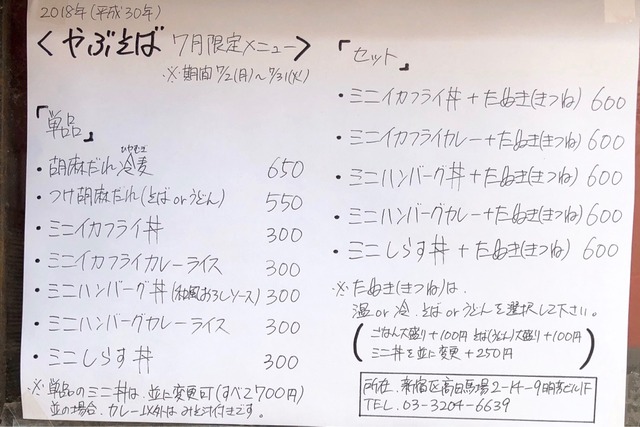 2018年(平成30年)
<やぶそば 7月限定メニュー>
※期間 7/2(月)〜7/31(火)
「単品」
・胡麻だれ冷麦 650
ひやむぎ
・つけ胡麻だれ(そばorうどん) 550
・ミニイカフライ丼 300
・ミニイカフライカレーライス 300
・ミニハンバーグ丼(和風おろしソース) 300
・ミニハンバーグカレーライス 300
・ミニしらす丼 300
※単品のミニ丼は、並に変更可(すべて700円)
並の場合、カレー以外はみそ汁付きです。
「セット」
・ミニイカフライ丼+たぬき(きつね) 600
・ミニイカフライカレー+たぬき(きつね) 600
・ミニハンバーグ丼+たぬき(きつね) 600
・ミニハンバーグカレー+たぬき(きつね) 600
・ミニしらす丼+たぬき(きつね) 600
※たぬき(きつね)は、
温or冷、そばorうどんを選択して下さい。
(ごはん大盛り+100円 そば(うどん)大盛り+100円
ミニ丼を並に変更+250円)
所在、新宿区高田馬場2-14-9明芳ビル1F
TEL. 03-3204-6639